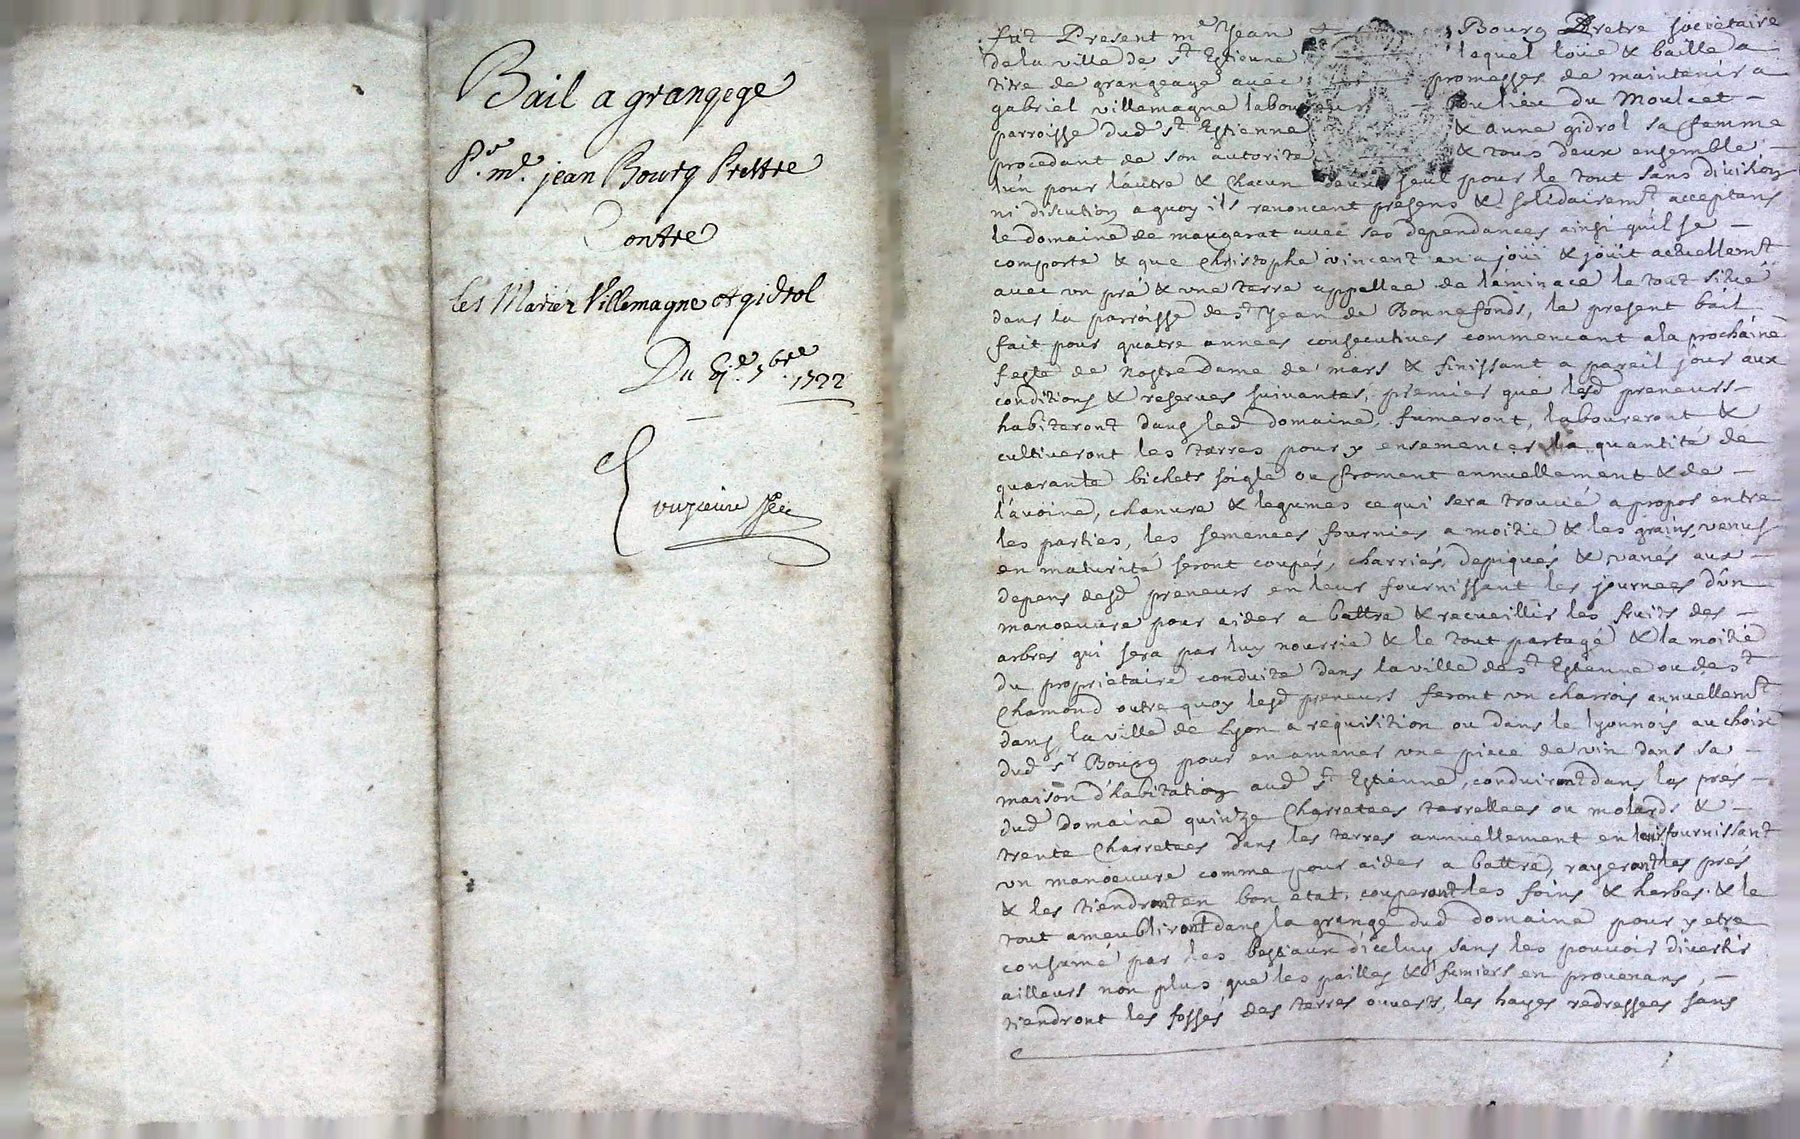 Bail a grangege
Pr. me. jean Bourg Prettre
Contre
les Mariez Villemagne et gidrol
Du 7bre 1722
fut Present me Jean Bourg Pretre societaire
de la ville de st Estienne lequel loüe & baille a
titre de grangeage avec promesses de maintenir a
gabriel villemagne laboureur du lieu du Moulcet
parroisse dud st Estienne & anne gidrol sa femme
procedant de son autorité & tous deux ensemble
l'un pour l'autre & chacun deux seul pour le tout sans division
ni discution a quoy ils renoncent présens & solidairemt acceptans
le domaine de maugerat avec ses dependances ainsi qu'il se
comporte & que Christophe vincent en a joüi & joüit actuellemt
avec un pré & une terre appellee de l'éminace le tout situé
dans la parroisse de st Jean de Bonnefonds, le present bail
fait pour quatre années consecutives commencant a la prochaine
feste de Nostre dame de mars & finissant a pareil jour aux
conditions & reserves suivantes, premier que lesd preneurs
habiteront dans led domaine, fumeront, laboureront &
cultiveront les terres pour y ensemencer la quantité de
quarante bichets soigle ou froment annuellement & de
l'avoine, chanvre & legumes ce qui sera trouvé a propos entre
les parties, les semences fournies a moitie & les grains venus
en maturité seront coupés, charriés, depiqués & vanés aux
depens desd preneurs en leur fournissant les journees d'un
manoeuvre pour aider a battre & recueillir les fruits des
arbres qui sera par luy nourrie & le tout partagé & la moitié
du proprietaire conduite dans la ville de st Estienne ou de st
Chamond outre quoy lesd preneurs feront un charrois annuellemt
dans la ville de Lyon a requisition ou dans le lyonnois au choix
dud sr Bourg pour en amener une piece de vin dans sa
maison d'habitation aud st Estienne, conduiront dans les prés
dud domaine quinze charretees terrellees ou molards &
trente charretees dans les terres annuellement en leur fournissant
un manoeuvre comme pour aider a battre, rayeront les prés
& les tiendront en bon etat, couperont les foins & herbes & le
tout ameubliront dans la grange dud domaine pour y etre
consumé par les bestiaux d'iceluy sans les pouvoir divertir
ailleurs non plus que les pailles & fumiers en provenans,
tiendront les fossés des terres ouverts, les hayes redressees sans